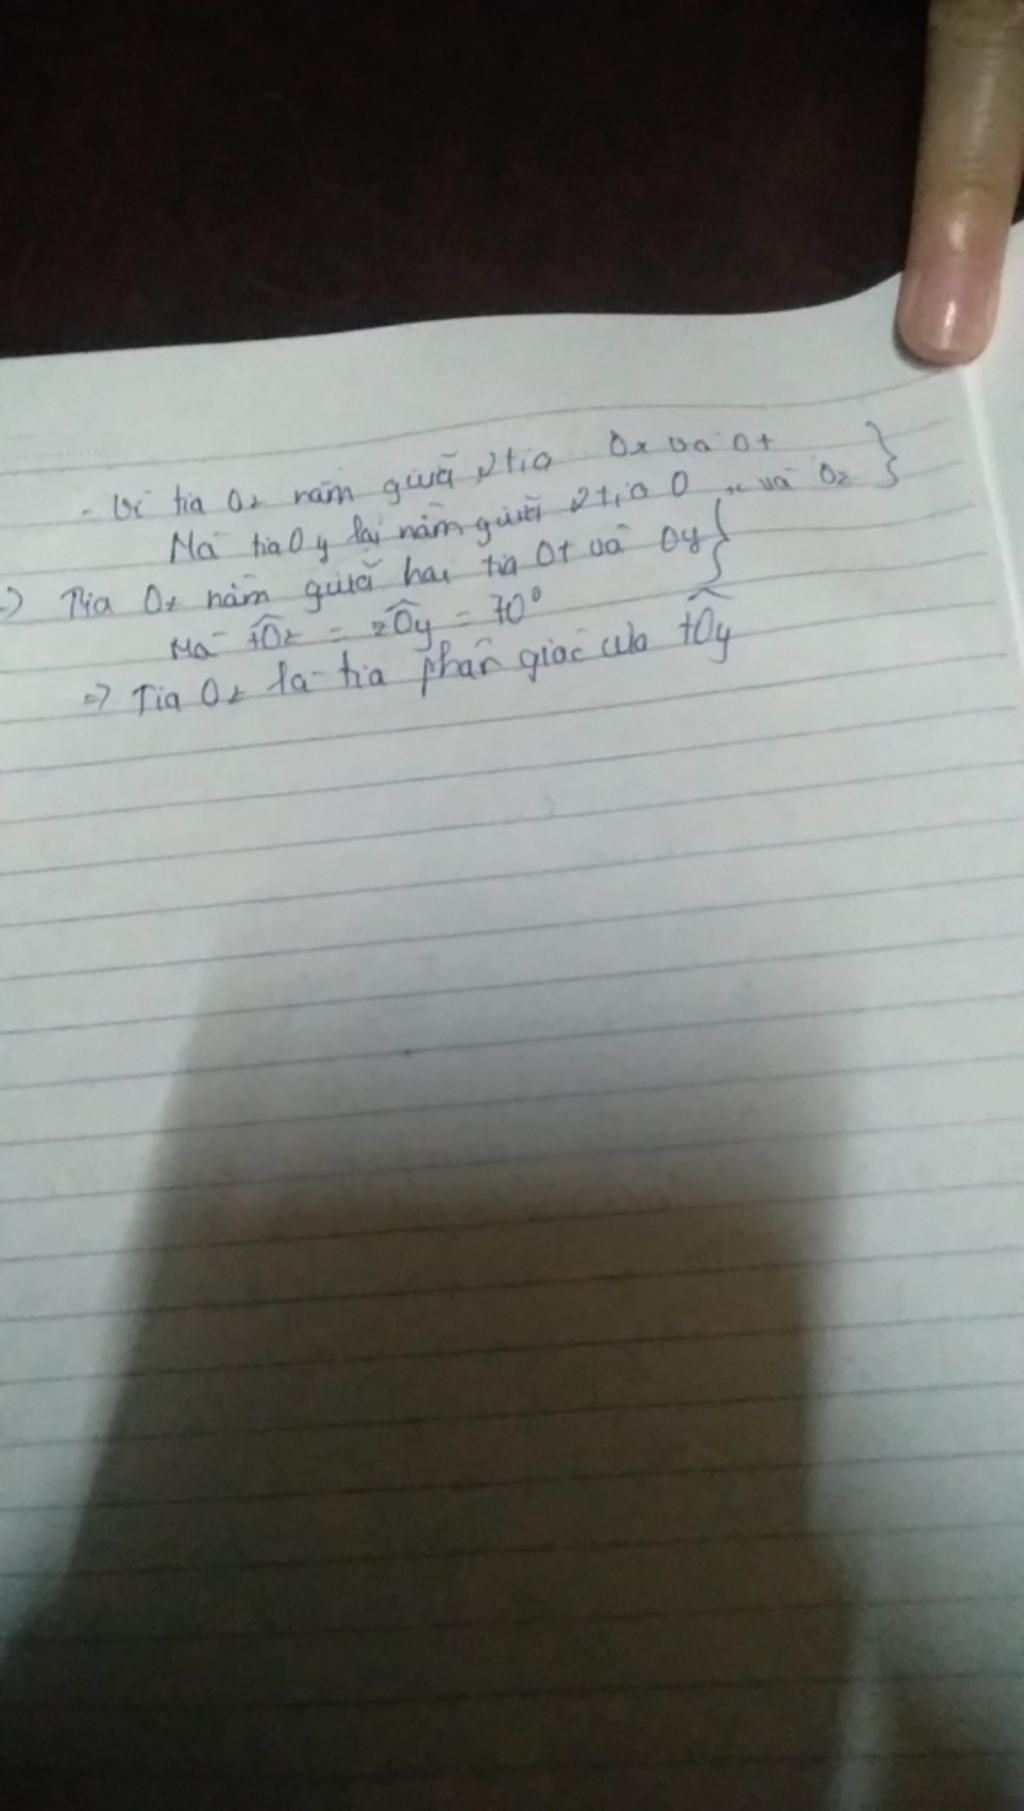 - Vì tia Oz nằm giữa 2 tia Ox và Ot }
Mà tia Oy lại nằm giữa 2 tia Ox và Oz
=> Tia Oz nằm giữa hai tia Ot và Oy }
Mà tOz = zOy = 70°
=> Tia Oz là tia phân giác của tOy